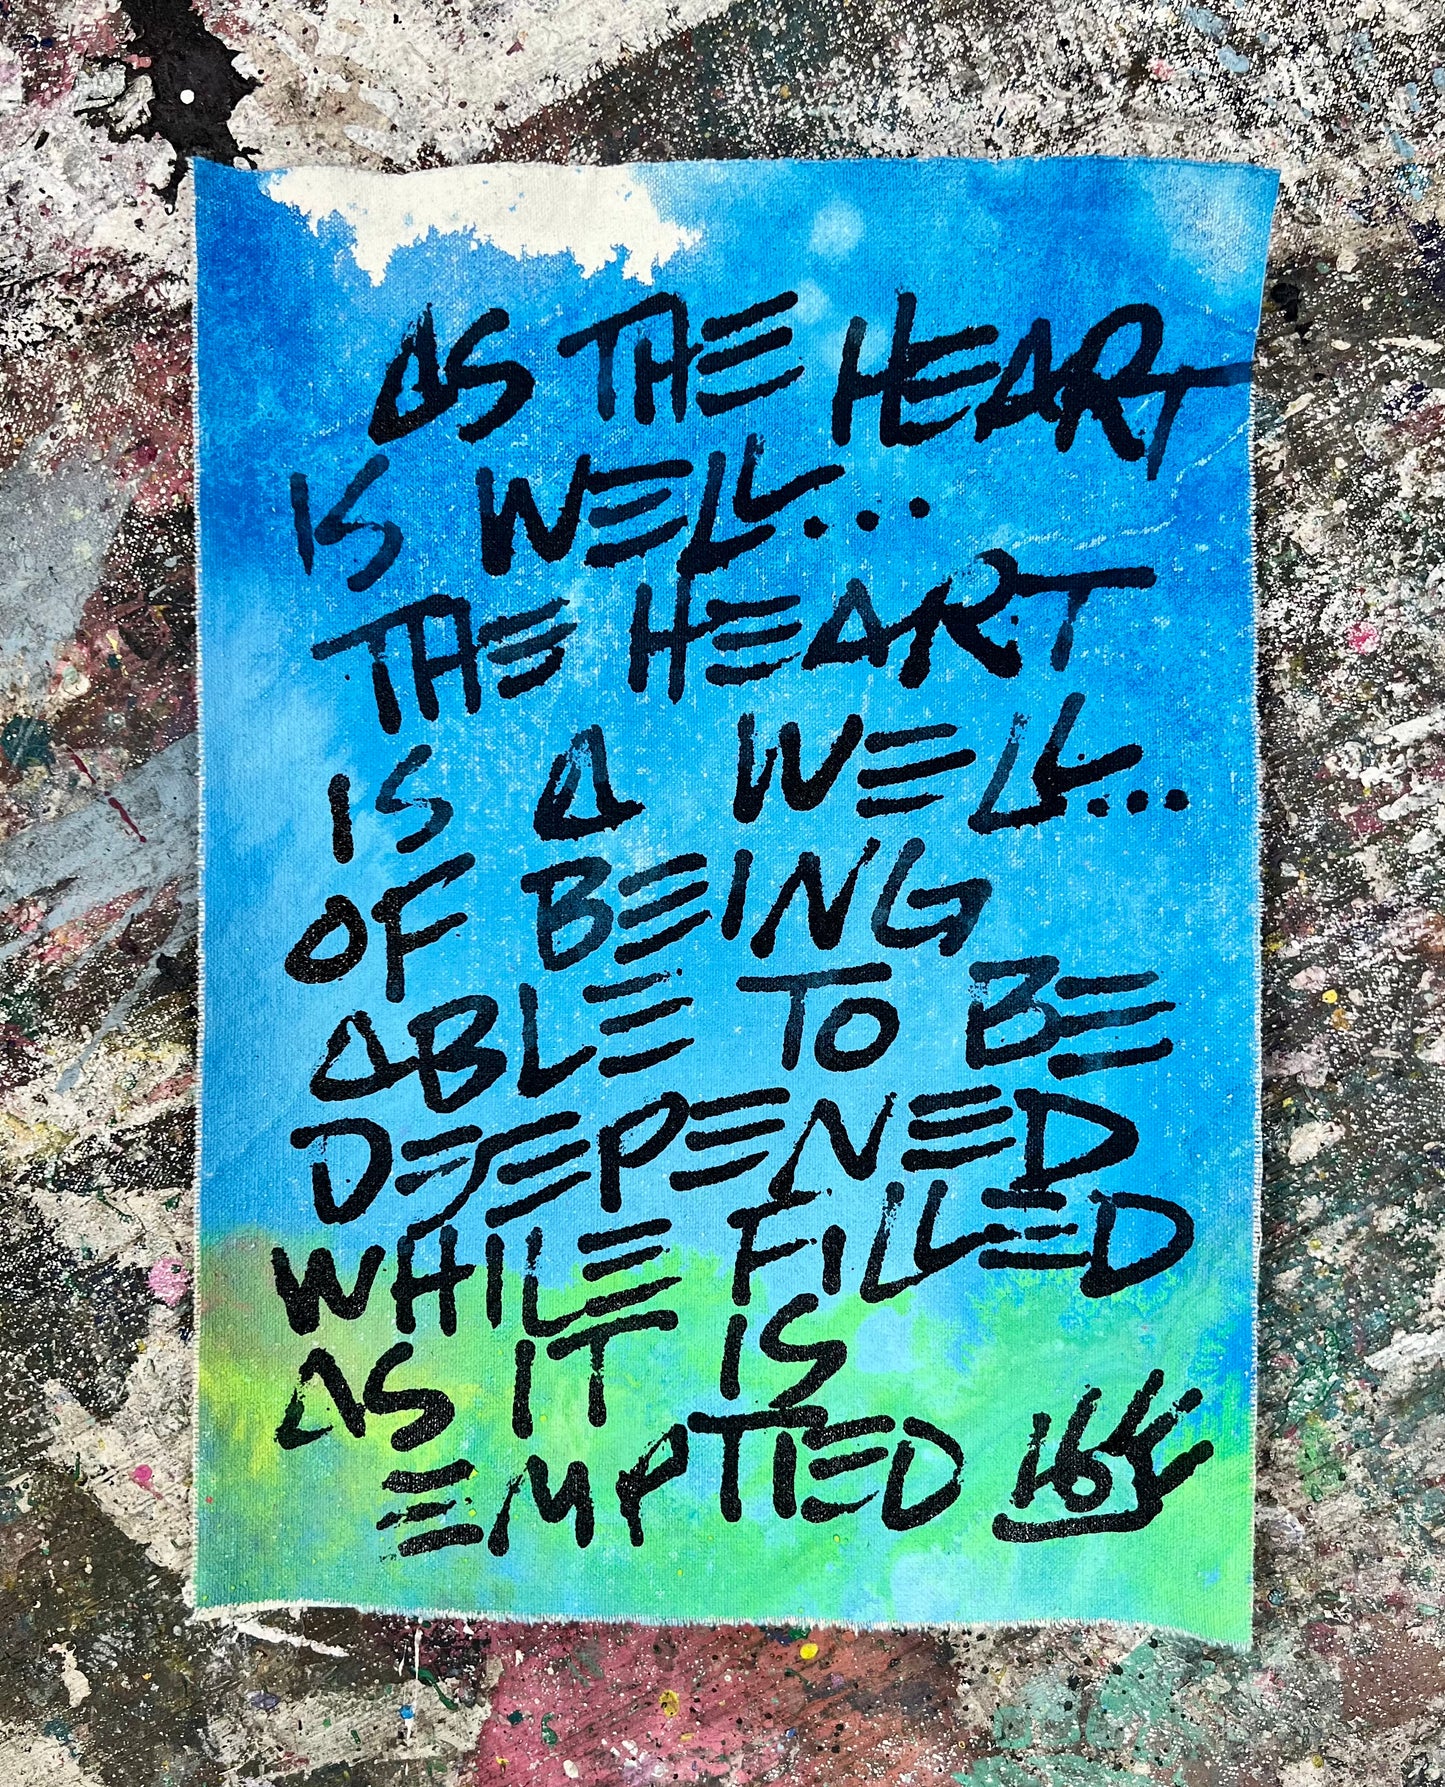 AS THE HEART
IS WELL...
THE HEART
IS A WELL...
OF BEING
ABLE TO BE
DEEPENED
WHILE FILLED
AS IT IS
EMPTIED